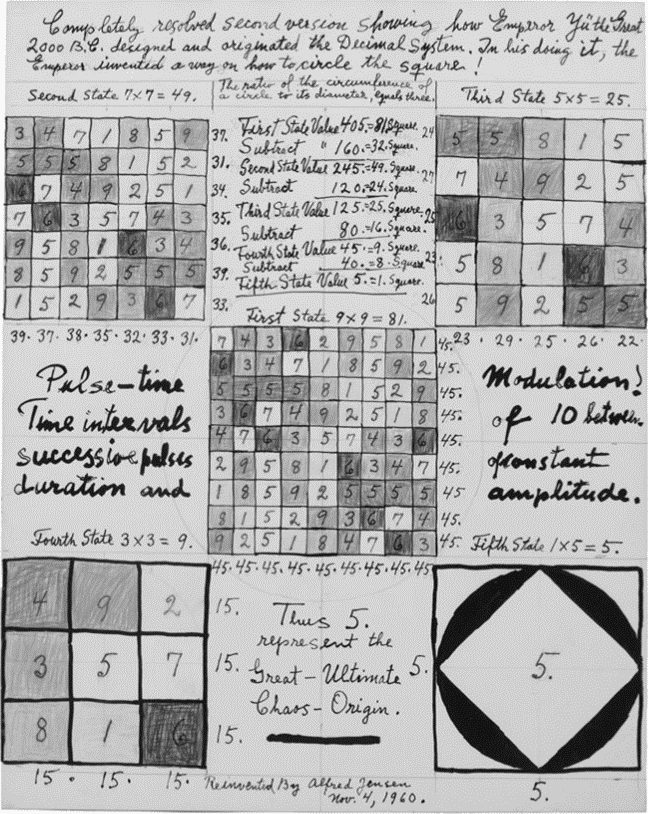 Completely resolved second version showing how Emperor Yü the Great
2000 B.C. designed and originated the Decimal System. In his doing it, the
Emperor invented a way on how to circle the square!
Second State 7×7 = 49.
3 4 7 1 8 5 9 37.
5 5 5 8 1 5 2 31.
6 7 4 9 2 5 1 34.
7 6 3 5 7 4 3 35.
9 5 8 1 6 3 4 36.
8 5 9 2 5 5 5 39.
1 5 2 9 3 6 7 33.
39. 37. 38. 35. 32. 33. 31.
The ratio of the circumference of
a circle to its diameter, equals three.
First State Value 405.=81 Square.
Subtract " 160.=32. Square.
Second State Value 245.=49. Square.
Subtract 120.=24. Square.
Third State Value 125.=25. Square.
Subtract 80.=16. Square.
Fourth State Value 45.=9. Square.
Subtract 40.=8. Square.
Fifth State Value 5.=1. Square.
Third State 5×5 = 25.
24 5 5 8 1 5
27 7 4 9 2 5
25 6 3 5 7 4
23. 5 8 1 6 3
26 5 9 2 5 5
23 · 29 · 25 · 26 · 22.
First State 9×9 = 81.
7 4 3 6 2 9 5 8 1 45.
6 3 4 7 1 8 5 9 2 45.
5 5 5 5 8 1 5 2 9 45.
3 6 7 4 9 2 5 1 8 45.
4 7 6 3 5 7 4 3 6 45.
2 9 5 8 1 6 3 4 7 45.
1 8 5 9 2 5 5 5 5 45
8 1 5 2 9 3 6 7 4 45.
9 2 5 1 8 4 7 6 3 45.
45. 45. 45. 45. 45. 45. 45. 45. 45
Pulse-time
Time intervals
successive pulses
duration and
Modulation!
of 10 between
constant
amplitude.
Fourth State 3×3 = 9.
4 9 2 15.
3 5 7 15.
8 1 6 15.
15. 15. 15.
Thus 5.
represent the
Great-Ultimate
Chaos-Origin.
Fifth State 1×5 = 5.
5. 5.
5.
Reinvented By Alfred Jensen
Nov. 4, 1960.